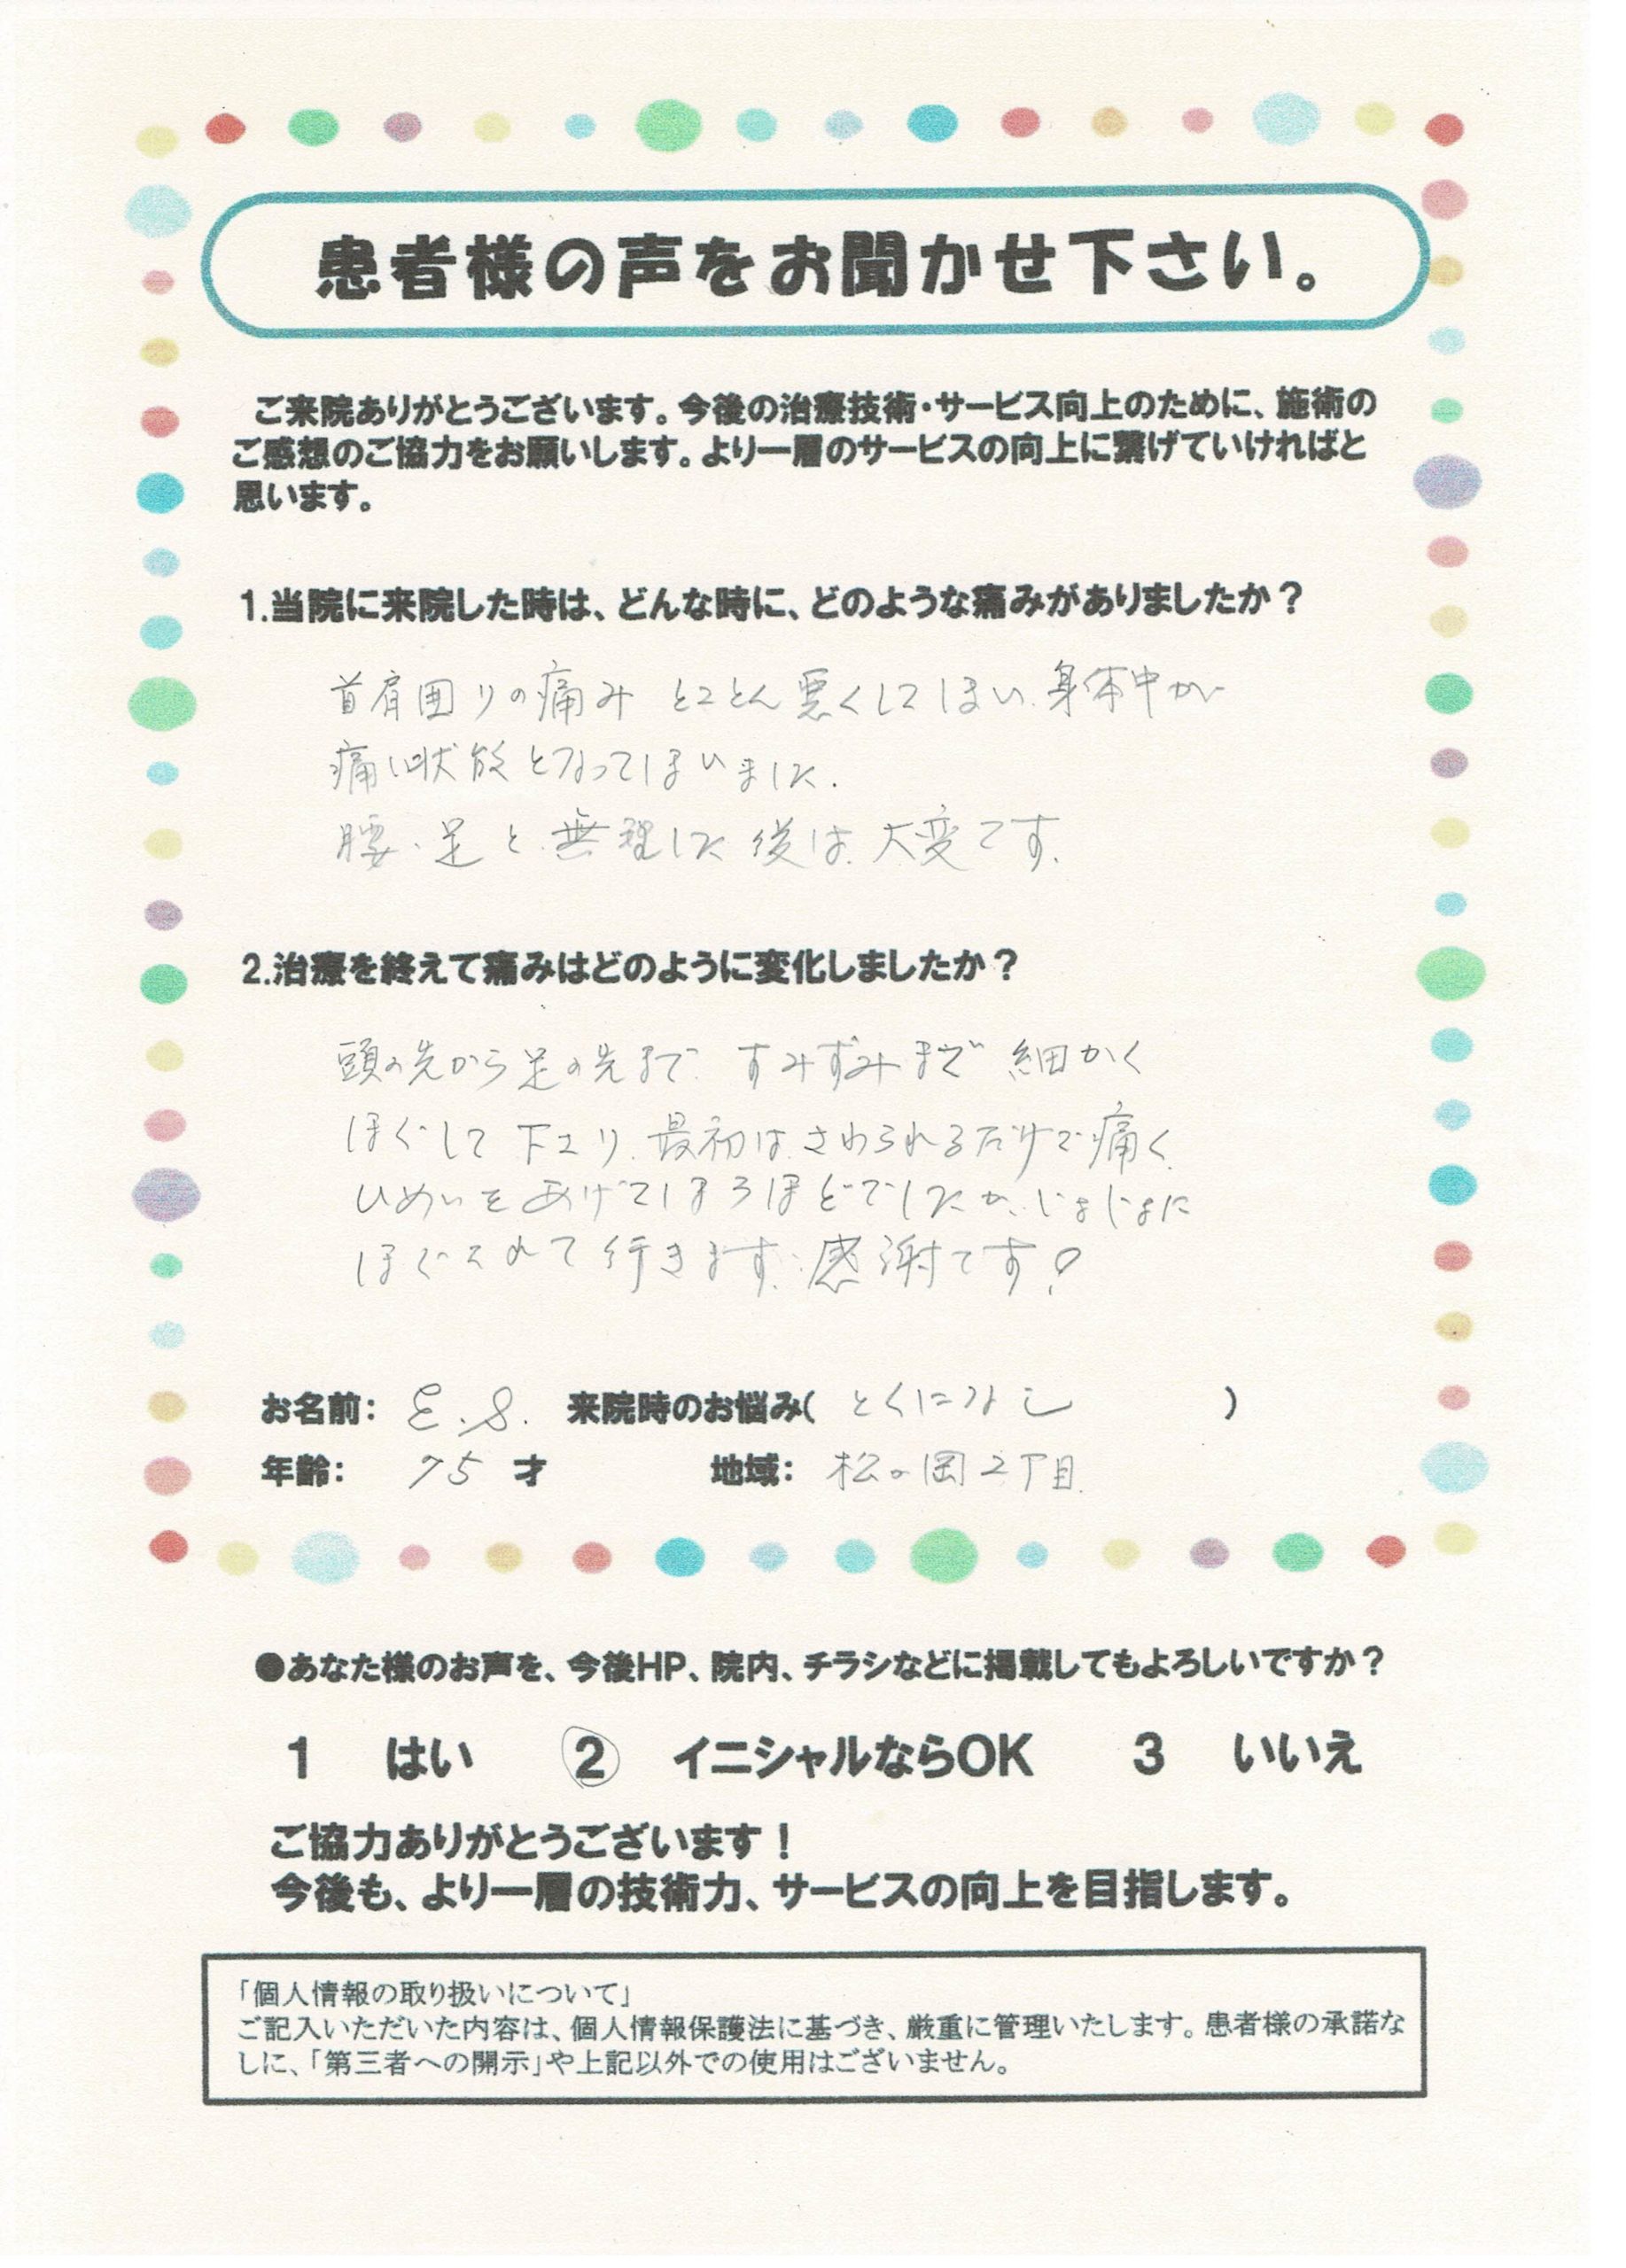 患者様の声をお聞かせ下さい。
ご来院ありがとうございます。今後の治療技術・サービス向上のために、施術の
ご感想のご協力をお願いします。より一層のサービスの向上に繋げていければと
思います。
1.当院に来院した時は、どんな時に、どのような痛みがありましたか？
首肩囲りの痛み とことん悪くしてしまい、身体中が
痛い状態となってしまいました。
腰、足と、無理した後は、大変です。
2.治療を終えて痛みはどのように変化しましたか？
頭の先から足の先まで、すみずみまで 細かく
ほぐして下さり、最初は、さわられるだけで痛く、
ひめいをあげてしまうほどでしたが、じょじょに
ほぐされて行きます、感謝です!
お名前： E.S. 来院時のお悩み( とくになし )
年齢： 75 才 地域： 松ヶ岡2丁目
●あなた様のお声を、今後HP、院内、チラシなどに掲載してもよろしいですか？
1 はい 2 イニシャルならOK 3 いいえ
ご協力ありがとうございます！
今後も、より一層の技術力、サービスの向上を目指します。
「個人情報の取り扱いについて」
ご記入いただいた内容は、個人情報保護法に基づき、厳重に管理いたします。患者様の承諾な
しに、「第三者への開示」や上記以外での使用はございません。